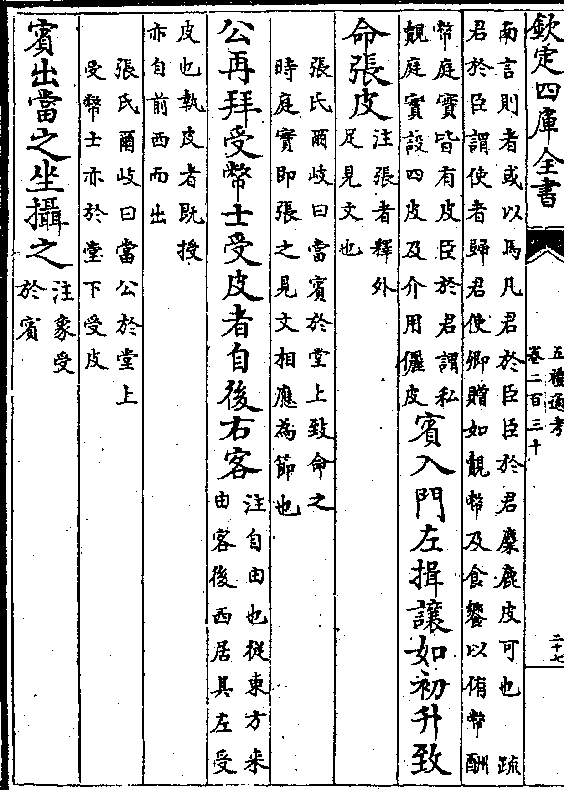 欽定四庫全書
五禮通考
卷二百三十
二十七
南言則者或以馬凡君於臣臣於君麋鹿皮可也 疏
君於臣謂使者歸君使卿贈如覿幣及食饗以侑幣酬
幣庭實皆有皮臣於君謂私
覿庭實設四皮及介用儷皮
賓入門左揖讓如初升致
命張皮
注張者釋外
足見文也
張氏爾岐曰當賓於堂上致命之
時庭實即張之見文相應為節也
公再拜受幣士受皮者自後右客
注自由也從東方来
由客後西居其左受
皮也執皮者既授
亦自前西而出
張氏爾岐曰當公於堂上
受幣士亦於堂下受皮
賓出當之坐攝之
注象受
於賓